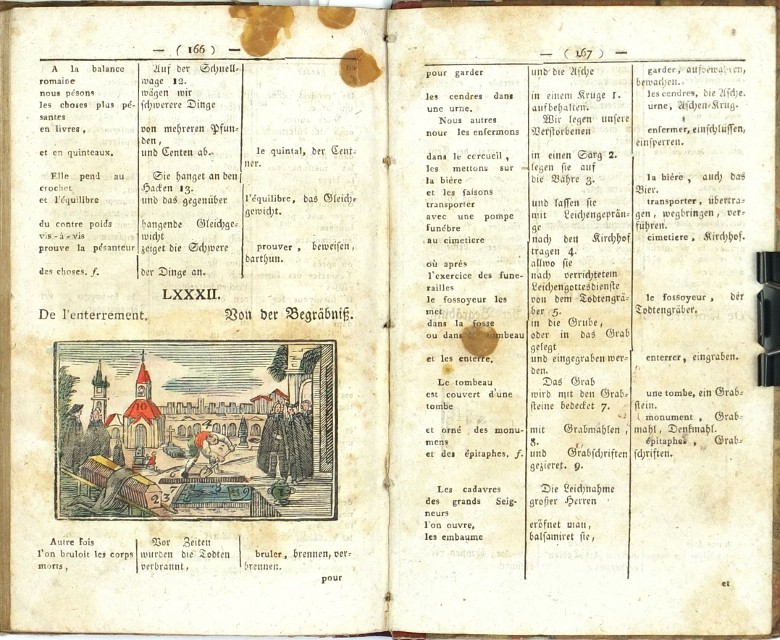 — ( 166 ) —
A la balance | Auf der Schnell-
romaine | wage 12.
nous pésons | wägen wir
les choses plus pé- | schwerere Dinge
santes
en livres, | von mehreren Pfun-
den,
et en quinteaux. | und Centen ab. | le quintal, der Cent-
ner.
Elle pend au | Sie hanget an den
crochet | Hacken 13.
et l'équilibre | und das gegenüber | l'équilibre, das Gleich-
gewicht.
du contre poids | hangende Gleichge-
vis-à-vis | wicht
prouve la pésanteur | zeiget die Schwere | prouver, beweisen,
darthun.
des choses. f. | der Dinge an.
LXXXII.
De l'enterrement. Von der Begräbniß.
10
4
2 3
7
8
9
Autre fois | Vor Zeiten
l'on bruloit les corps | wurden die Todten | bruler, brennen, ver-
morts, | verbrannt, | brennen.
pour
— ( 167 ) —
pour garder | und die Asche | garder, aufbewahren,
bewachen.
les cendres dans | in einem Kruge 1. | les cendres, die Asche.
une urne. | aufbehalten. | urne, Aschen-Krug.
Nous autres | Wir legen unsere
nour les enfermons | Verstorbenen | enfermer, einschlüssen,
einsperren.
dans le cercueil, | in einen Sarg 2.
les mettons sur | legen sie auf
la biére | die Bahre 3. | la biére, auch das
et les faisons | Bier.
transporter | und lassen sie | transporter, übertra-
avec une pompe | mit Leichengeprän- | gen, wegbringen, ver-
funébre | ge | führen.
au cimetiere | nach den Kirchhof | cimetiere, Kirchhof.
tragen 4.
où après | allwo sie
l'exercice des fune- | nach verrichtetem
railles | Leichengottesdienste
le fossoyeur les | von dem Todtengrä- | le fossoyeur, der
met | ber 5. | Todtengräber.
dans la fosse | in die Grube,
ou dans | oder in das Grab
gelegt
et les enterre. | und eingegraben wer- | enterrer, eingraben.
den.
Le tombeau | Das Grab
est couvert d'une | wird mit den Grab- | une tombe, ein Grab-
tombe | steine bedecket 7. | stein.
monument, Grab-
et orné des monu- | mit Grabmahlen, | mahl, Denkmahl.
mens | 8. | épitaphe, Grab-
et des épitaphes. f. | und Grabschriften | schriften.
gezieret. 9.
Les cadavres | Die Leichname
des grands Seig- | großer Herren
neurs
l'on ouvre, | eröfnet man,
les embaume | balsamiret sie,
et